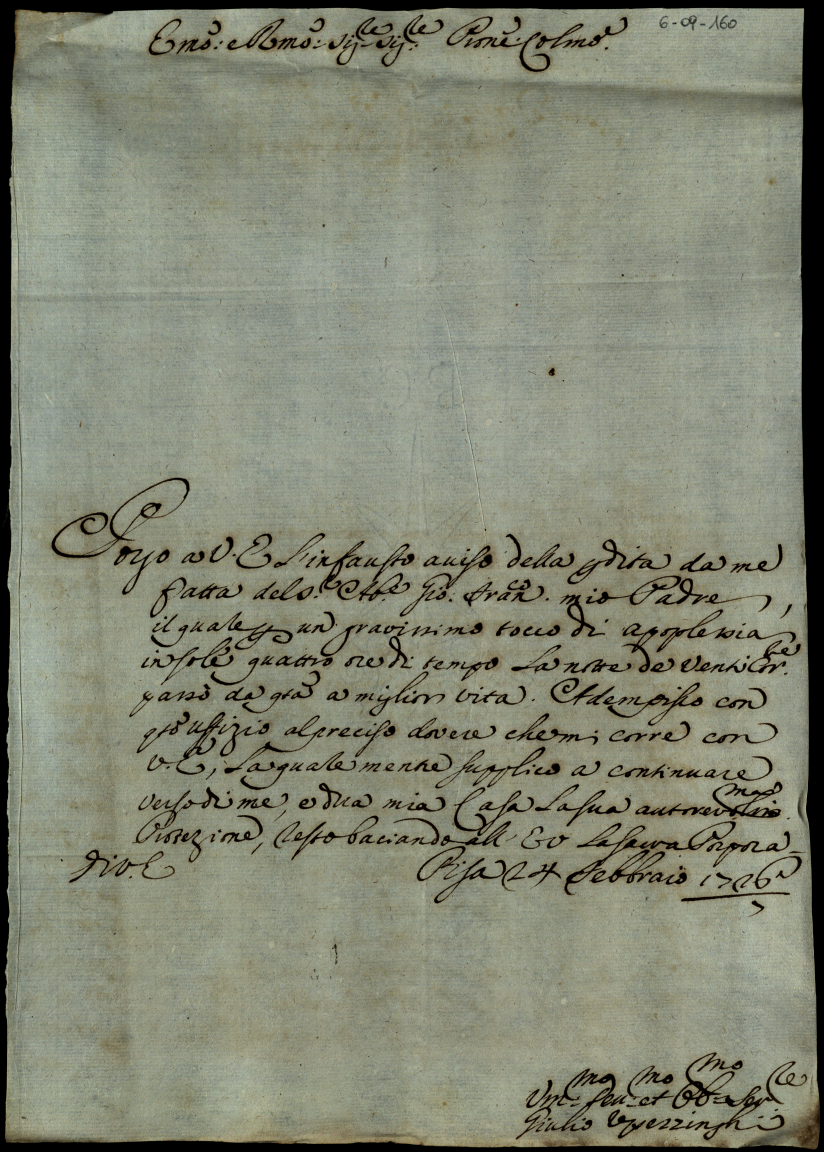 6-09-160
Emo: e Rmo: Sigre Sigre Prone Colmo
Porgo a V. E. L'infausto aviso della pdita da me
fatta del S. Gio: Franco mio Padre,
il quale p un gravissimo tocco di apoplessia
in sole quattro ore di tempo La notte de venti Corte
passò da qta a miglior vita. Adempisco con
qto uffizio al preciso dovere che mi corre con
V. E., La quale mente supplico a continuare
verso di me, e d'ua mia Casa La sua autorevolma
Protezione, resto baciando all' E V La sacra Porpora
Di V. E. Pisa 24 Febbraio 1726
7
Vmmo Deumo et Obbmo Serre
Giulio Vpezzinghi